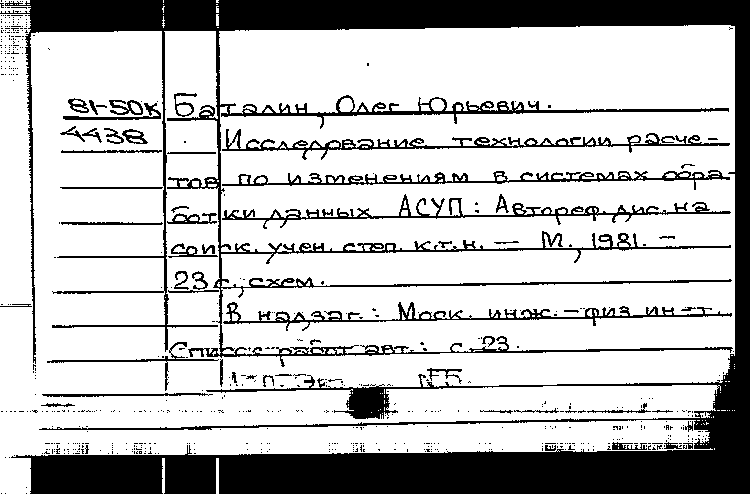 81-50К Баталин, Олег Юрьевич.
4438 Исследование технологии расче-
тов по изменениям в системах обра-
ботки данных АСУП: Автореф. дис. на
соиск. учен. степ. к.т.н. — М., 1981. —
23 с., схем.
В надзаг.: Моск. инж.-физ ин-т.
Список работ авт.: с. 23.